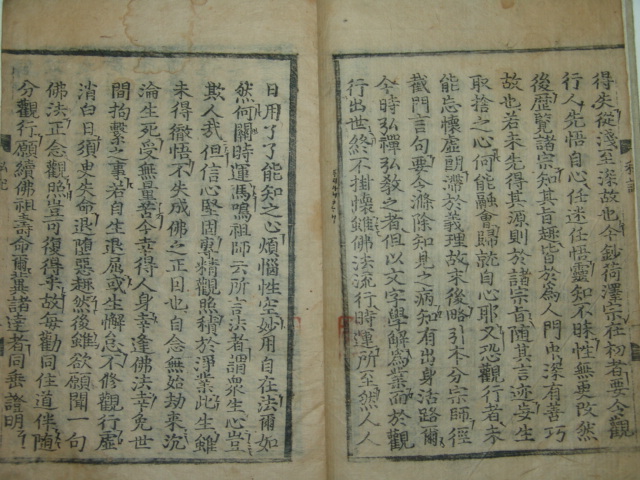 得失從淺至深故也今鈔荷澤宗在初者要令觀
行人先悟自心任迷任悟靈知不昧性無更改然
後歷覽諸宗知其旨趣皆於爲人門中深有善巧
故也若未先得其源則於諸宗旨隨其言迹妄生
取捨之心何能融會歸就自心耶又恐觀行者未
能忘懷虛朗滯於義理故末後略引本分宗師徑
截門言句要令滌除知見之病知有出身活路爾
今時弘禪弘敎之者但以文字學解爲業而於觀
行出世終不掛懷雖佛法流行時運所至然人人
日用了了能知之心煩惱性空妙用自在法爾如
然何關時運馬鳴祖師云所言法者謂衆生心豈
欺人哉但信心堅固專精觀照積於淨業此生雖
未得徹悟不失成佛之正因也自念無始劫來沉
淪生死受無量苦今幸得人身幸逢佛法幸免世
間拘繫之事若自生退屈或生懈怠不修觀行虛
消白日須臾失命退墮惡趣然後雖欲願聞一句
佛法正念觀照豈可復得來故每勸同住道伴隨
分觀行願續佛祖壽命爾冀諸達者同垂證明